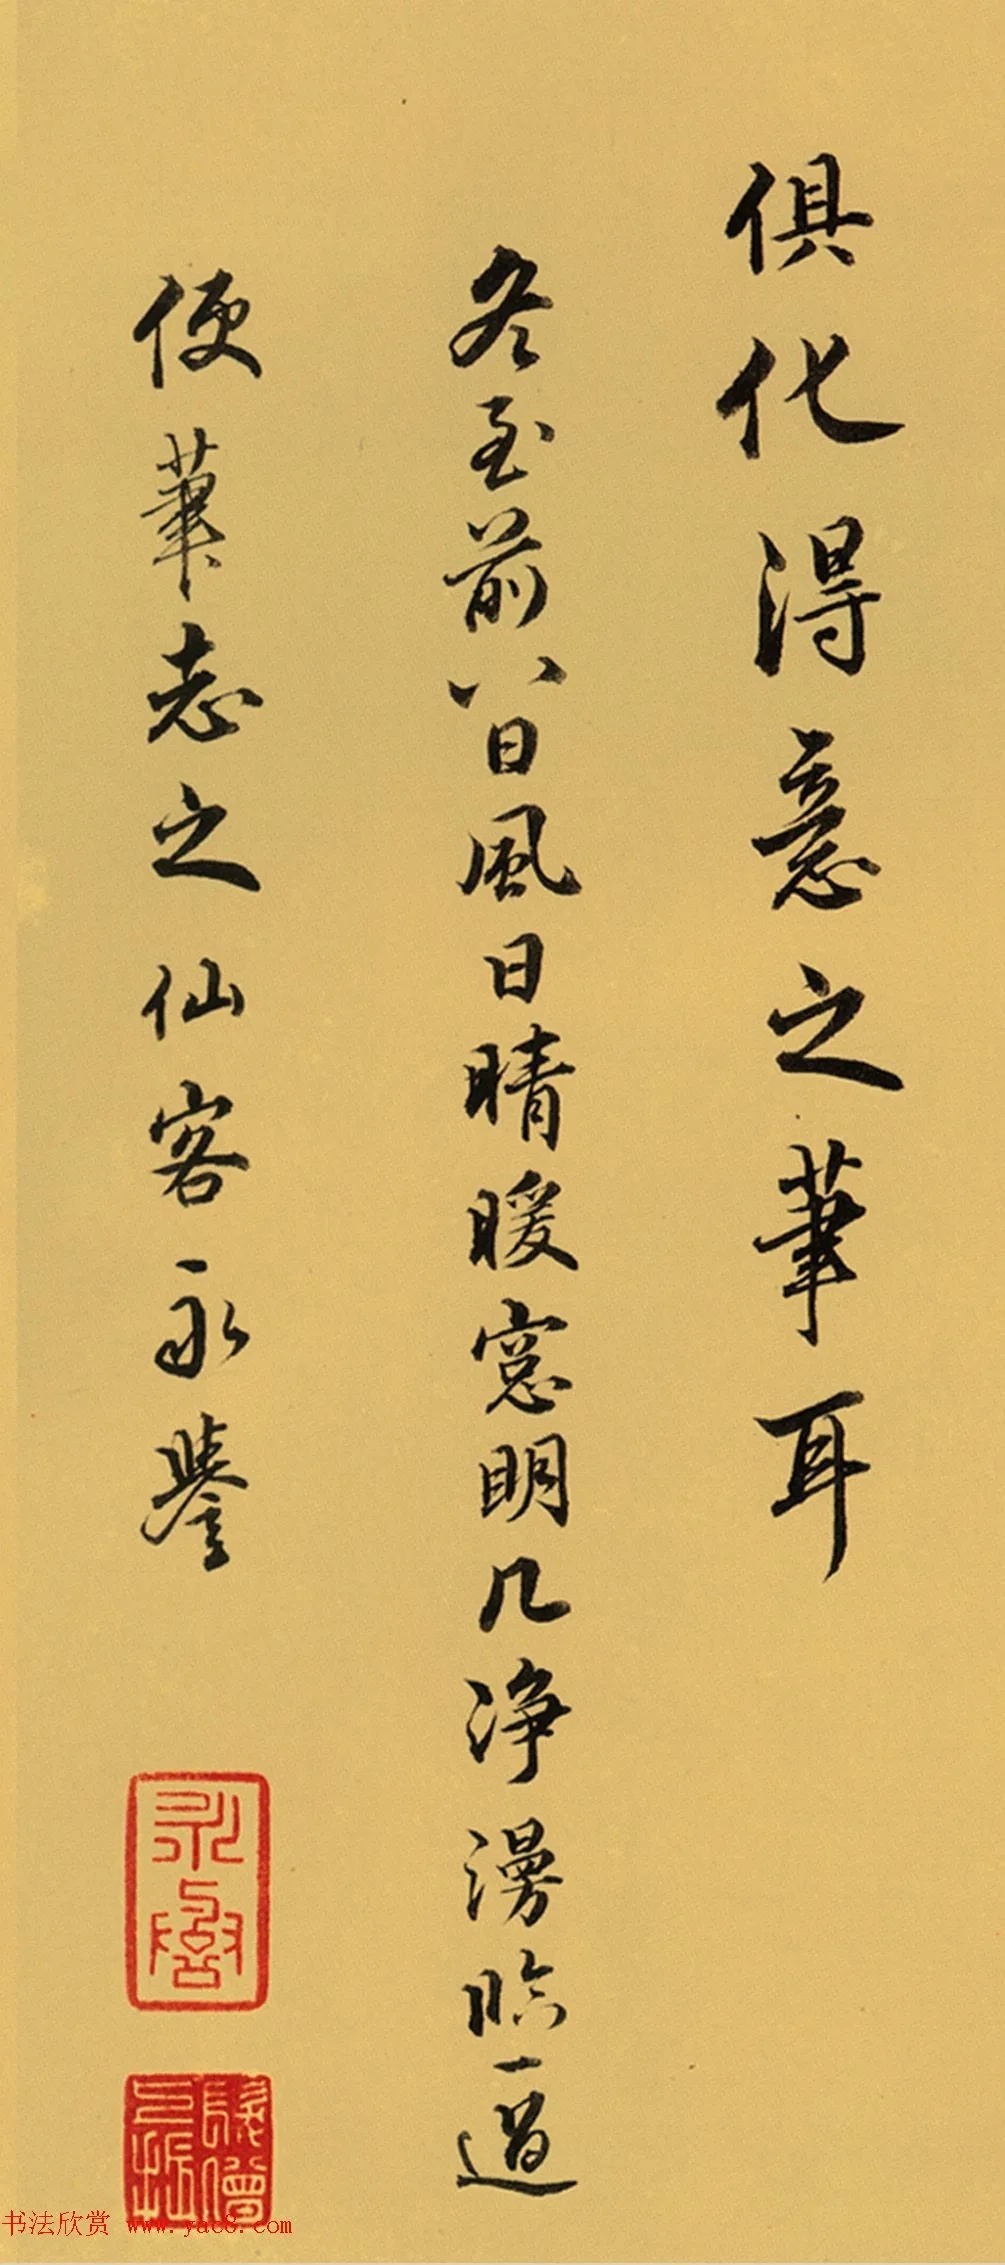 俱化得意之筆耳
冬至前八日風日晴暖窓明几淨漫臨一過
便筆志之仙客永譽
永譽
書法欣賞 www.yac8.com